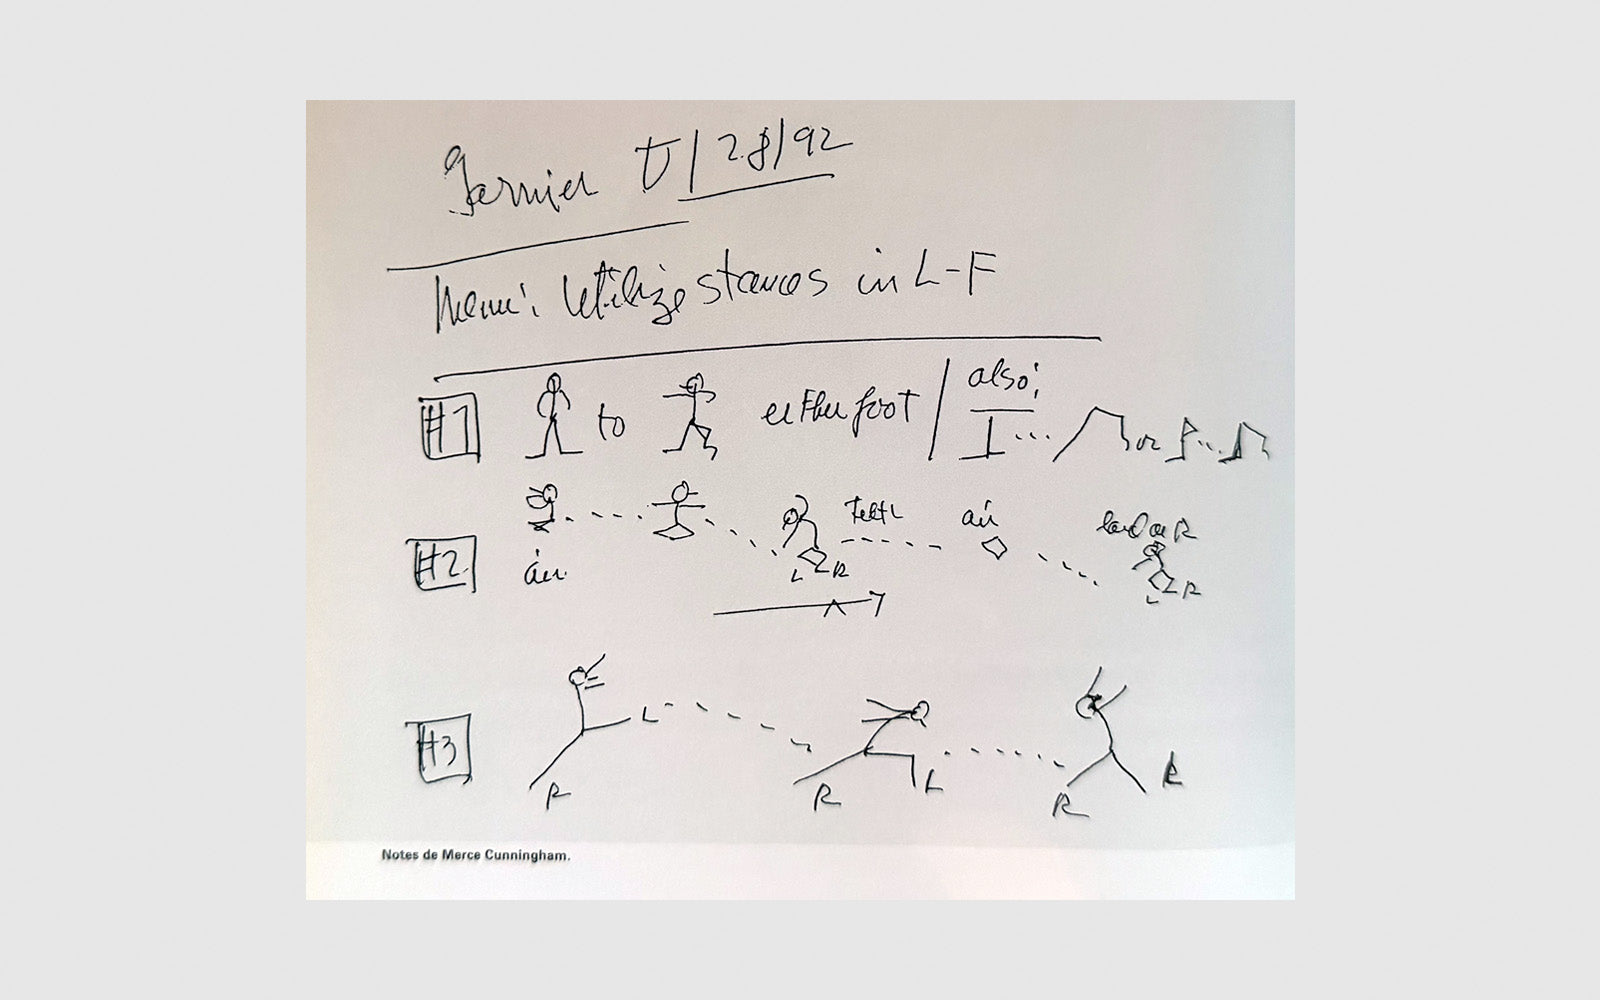 Garnier V/28/92
Memo: Utilize stances in L-F
#1 to either foot / also: or
#2 air L R air land on R L R
#3 R L R L R
Notes de Merce Cunningham.